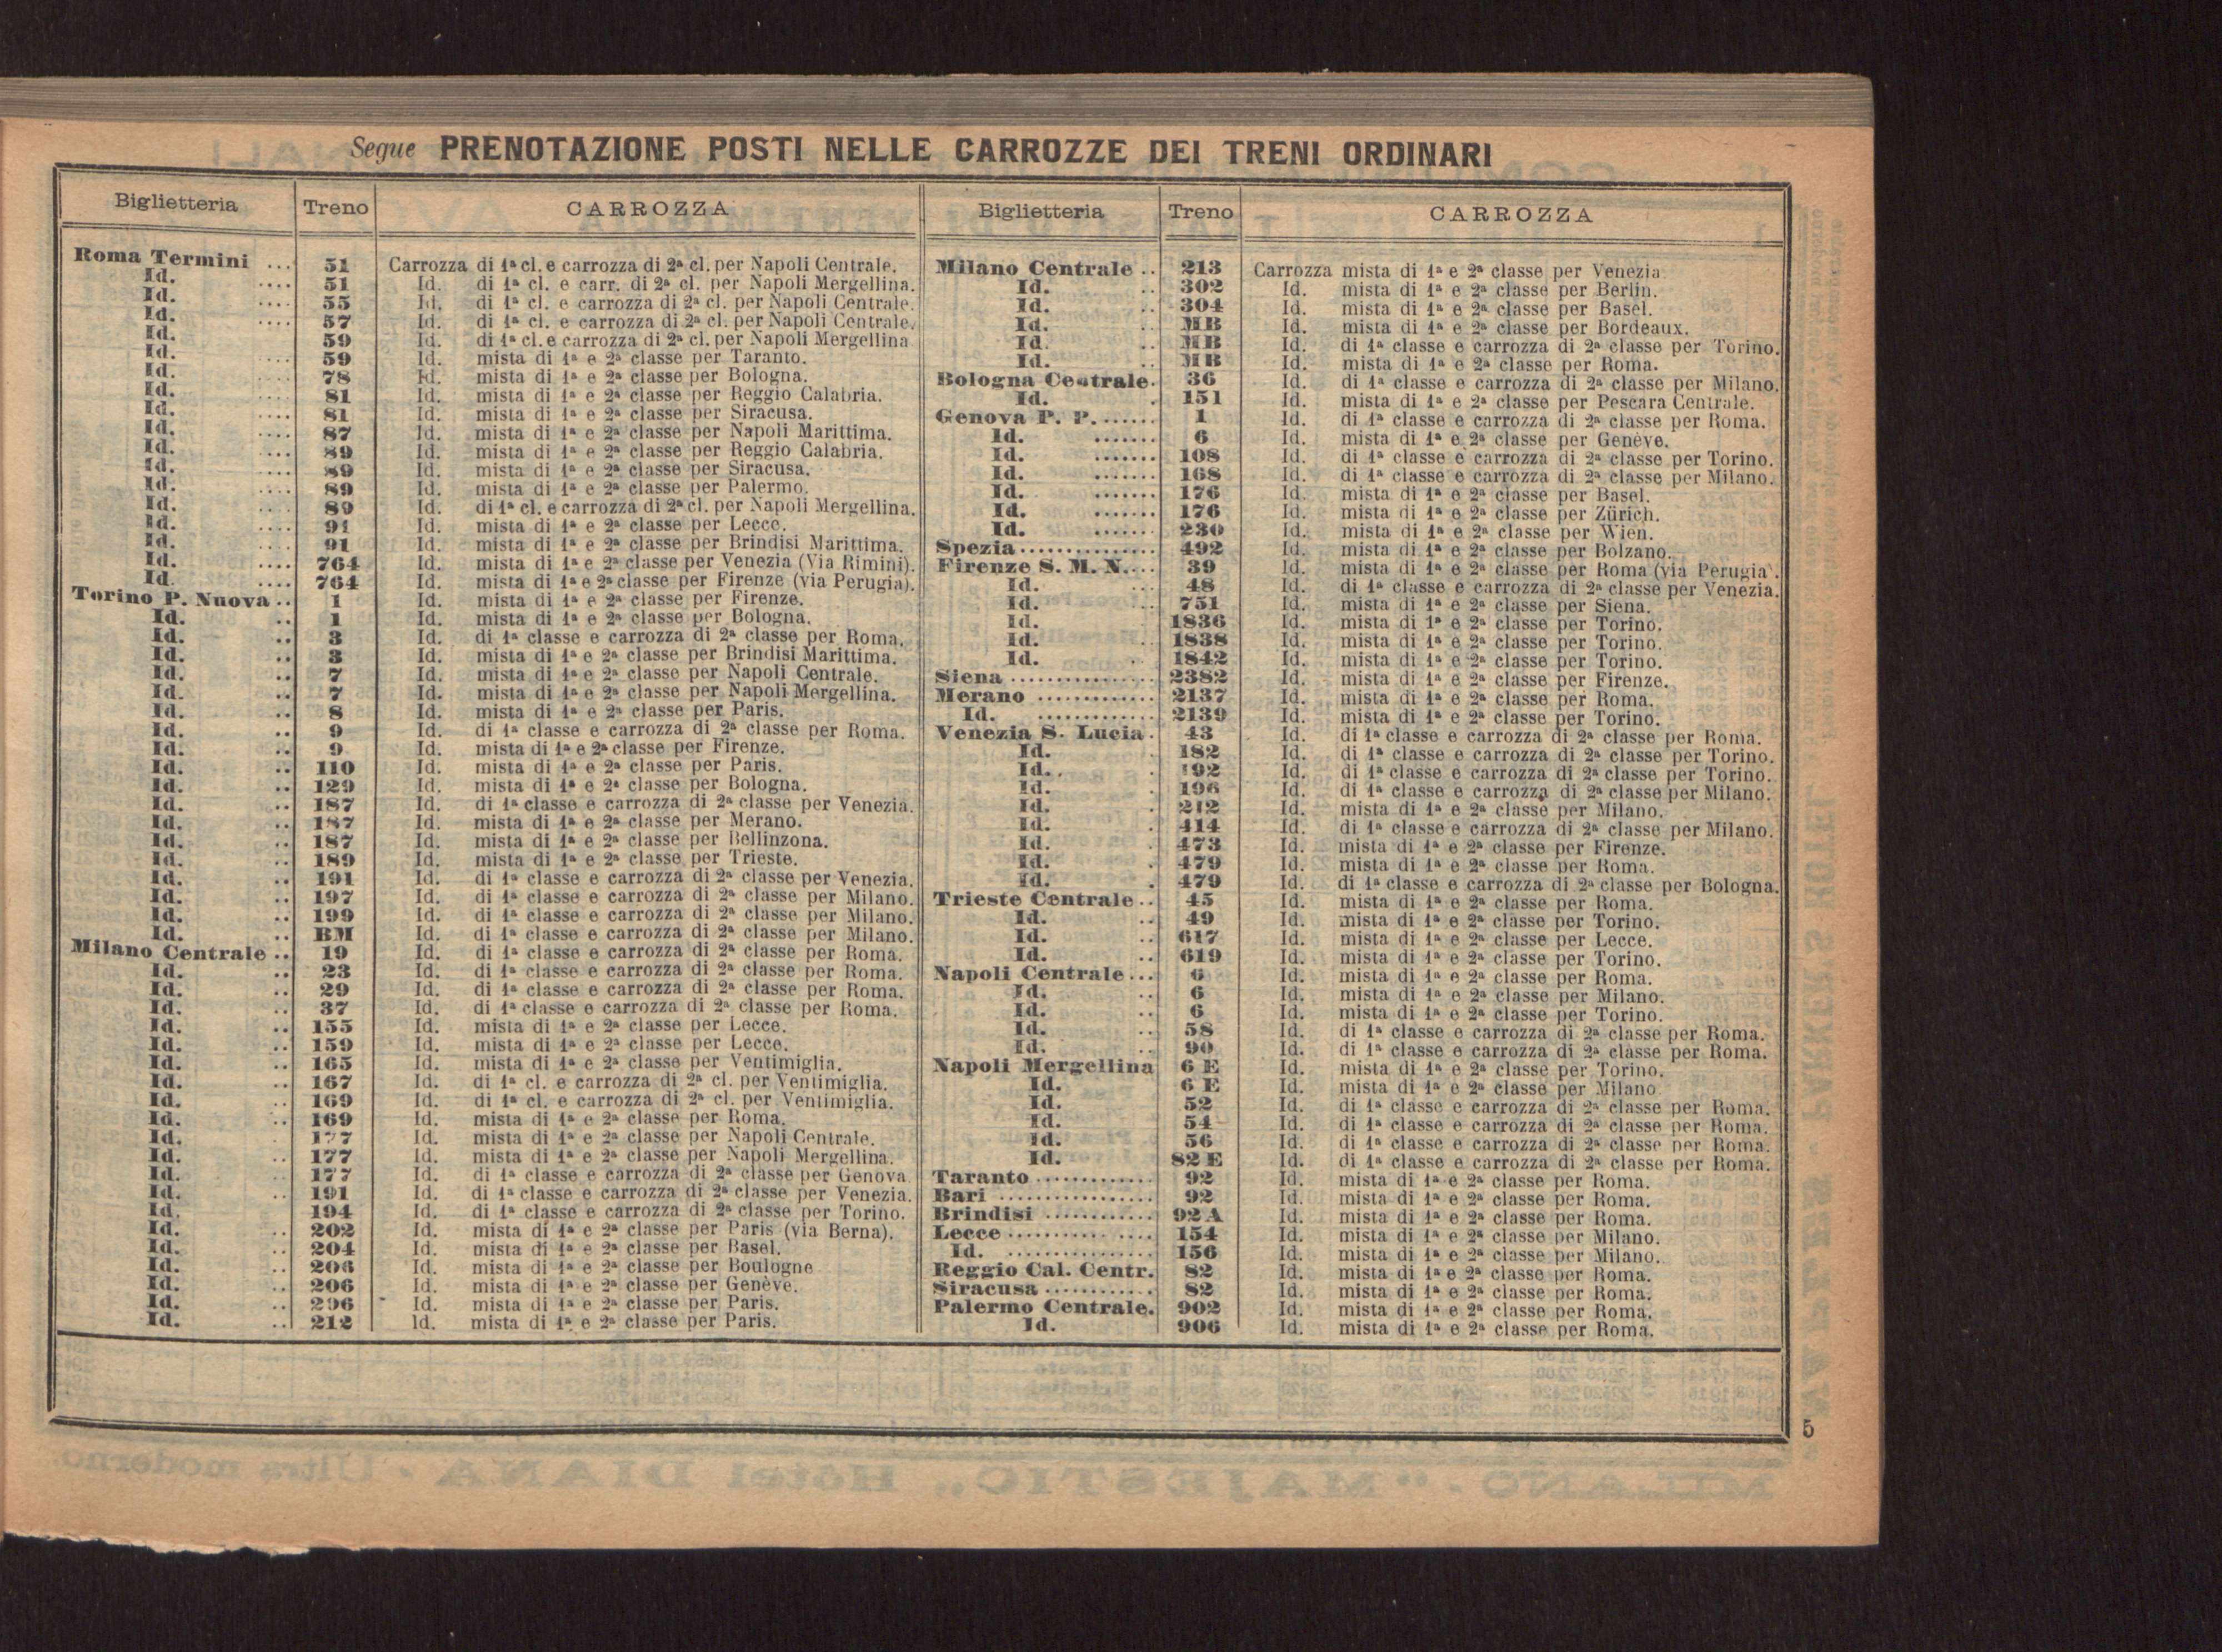 Segue PRENOTAZIONE POSTI NELLE CARROZZE DEI TRENI ORDINARI
Biglietteria Treno CARROZZA
Roma Termini ... 51 Carrozza di 1ª cl. e carrozza di 2ª cl. per Napoli Centrale.
Id. .... 51 Id. di 1ª cl. e carr. di 2ª cl. per Napoli Mergellina.
Id. .... 55 Id. di 1ª cl. e carrozza di 2ª cl. per Napoli Centrale.
Id. .... 57 Id. di 1ª cl. e carrozza di 2ª cl. per Napoli Centrale.
Id. 59 Id. di 1ª cl. e carrozza di 2ª cl. per Napoli Mergellina
Id. .... 59 Id. mista di 1ª e 2ª classe per Taranto.
Id. .... 78 Id. mista di 1ª e 2ª classe per Bologna.
Id. .... 81 Id. mista di 1ª e 2ª classe per Reggio Calabria.
Id. .... 81 Id. mista di 1ª e 2ª classe per Siracusa.
Id. .... 87 Id. mista di 1ª e 2ª classe per Napoli Marittima.
Id. .... 89 Id. mista di 1ª e 2ª classe per Reggio Calabria.
Id. .... 89 Id. mista di 1ª e 2ª classe per Siracusa.
Id. .... 89 Id. mista di 1ª e 2ª classe per Palermo.
Id. .... 89 Id. di 1ª cl. e carrozza di 2ª cl. per Napoli Mergellina.
Id. .... 91 Id. mista di 1ª e 2ª classe per Lecce.
Id. .... 91 Id. mista di 1ª e 2ª classe per Brindisi Marittima.
Id. .... 764 Id. mista di 1ª e 2ª classe per Venezia (Via Rimini).
Id. .... 764 Id. mista di 1ª e 2ª classe per Firenze (via Perugia).
Torino P. Nuova .. 1 Id. mista di 1ª e 2ª classe per Firenze.
Id. .. 1 Id. mista di 1ª e 2ª classe per Bologna.
Id. .. 3 Id. di 1ª classe e carrozza di 2ª classe per Roma.
Id. .. 3 Id. mista di 1ª e 2ª classe per Brindisi Marittima.
Id. .. 7 Id. mista di 1ª e 2ª classe per Napoli Centrale.
Id. .. 7 Id. mista di 1ª e 2ª classe per Napoli Mergellina.
Id. .. 8 Id. mista di 1ª e 2ª classe per Paris.
Id. .. 9 Id. di 1ª classe e carrozza di 2ª classe per Roma.
Id. .. 9 Id. mista di 1ª e 2ª classe per Firenze.
Id. .. 110 Id. mista di 1ª e 2ª classe per Paris.
Id. .. 129 Id. mista di 1ª e 2ª classe per Bologna.
Id. .. 187 Id. di 1ª classe e carrozza di 2ª classe per Venezia.
Id. .. 187 Id. mista di 1ª e 2ª classe per Merano.
Id. .. 187 Id. mista di 1ª e 2ª classe per Bellinzona.
Id. .. 189 Id. mista di 1ª e 2ª classe per Trieste.
Id. .. 191 Id. di 1ª classe e carrozza di 2ª classe per Venezia.
Id. .. 197 Id. di 1ª classe e carrozza di 2ª classe per Milano.
Id. .. 199 Id. di 1ª classe e carrozza di 2ª classe per Milano.
Id. .. BM Id. di 1ª classe e carrozza di 2ª classe per Milano.
Milano Centrale .. 19 Id. di 1ª classe e carrozza di 2ª classe per Roma.
Id. .. 23 Id. di 1ª classe e carrozza di 2ª classe per Roma.
Id. .. 29 Id. di 1ª classe e carrozza di 2ª classe per Roma.
Id. .. 37 Id. di 1ª classe e carrozza di 2ª classe per Roma.
Id. .. 155 Id. mista di 1ª e 2ª classe per Lecce.
Id. .. 159 Id. mista di 1ª e 2ª classe per Lecce.
Id. .. 165 Id. mista di 1ª e 2ª classe per Ventimiglia.
Id. .. 167 Id. di 1ª cl. e carrozza di 2ª cl. per Ventimiglia.
Id. .. 169 Id. di 1ª cl. e carrozza di 2ª cl. per Ventimiglia.
Id. .. 169 Id. mista di 1ª e 2ª classe per Roma.
Id. 177 Id. mista di 1ª e 2ª classe per Napoli Centrale.
Id. .. 177 Id. mista di 1ª e 2ª classe per Napoli Mergellina.
Id. .. 177 Id. di 1ª classe e carrozza di 2ª classe per Genova
Id. .. 191 Id. di 1ª classe e carrozza di 2ª classe per Venezia.
Id. 194 Id. di 1ª classe e carrozza di 2ª classe per Torino.
Id. .. 202 Id. mista di 1ª e 2ª classe per Paris (via Berna).
Id. .. 204 Id. mista di 1ª e 2ª classe per Basel.
Id. .. 206 Id. mista di 1ª e 2ª classe per Boulogne
Id. .. 206 Id. mista di 1ª e 2ª classe per Genève.
Id. .. 206 Id. mista di 1ª e 2ª classe per Paris.
Id. .. 212 Id. mista di 1ª e 2ª classe per Paris.
Biglietteria Treno CARROZZA
Milano Centrale .. 213 Carrozza mista di 1ª e 2ª classe per Venezia.
Id. .. 302 Id. mista di 1ª e 2ª classe per Berlin.
Id. .. 304 Id. mista di 1ª e 2ª classe per Basel.
Id. .. MB Id. mista di 1ª e 2ª classe per Bordeaux.
Id. .. MB Id. di 1ª classe e carrozza di 2ª classe per Torino.
Id. .. MB Id. mista di 1ª e 2ª classe per Roma.
Bologna Centrale. 36 Id. di 1ª classe e carrozza di 2ª classe per Milano.
Id. . 151 Id. mista di 1ª e 2ª classe per Pescara Centrale.
Genova P. P. ...... 1 Id. di 1ª classe e carrozza di 2ª classe per Roma.
Id. ....... 6 Id. mista di 1ª e 2ª classe per Genève.
Id. ....... 108 Id. di 1ª classe e carrozza di 2ª classe per Torino.
Id. ....... 168 Id. di 1ª classe e carrozza di 2ª classe per Milano.
Id. ....... 176 Id. mista di 1ª e 2ª classe per Basel.
Id. ....... 176 Id. mista di 1ª e 2ª classe per Zürich.
Id. ....... 230 Id. mista di 1ª e 2ª classe per Wien.
Spezia ............... 492 Id. mista di 1ª e 2ª classe per Bolzano.
Firenze S. M. N.... 39 Id. mista di 1ª e 2ª classe per Roma (via Perugia).
Id. ... 48 Id. di 1ª classe e carrozza di 2ª classe per Venezia.
Id. ... 751 Id. mista di 1ª e 2ª classe per Siena.
Id. 1836 Id. mista di 1ª e 2ª classe per Torino.
Id. 1838 Id. mista di 1ª e 2ª classe per Torino.
Id. . 1842 Id. mista di 1ª e 2ª classe per Torino.
Siena ............... 2382 Id. mista di 1ª e 2ª classe per Firenze.
Merano ............ 2137 Id. mista di 1ª e 2ª classe per Roma.
Id. ............ 2139 Id. mista di 1ª e 2ª classe per Torino.
Venezia S. Lucia. 43 Id. di 1ª classe e carrozza di 2ª classe per Roma.
Id. . 182 Id. di 1ª classe e carrozza di 2ª classe per Torino.
Id. . 192 Id. di 1ª classe e carrozza di 2ª classe per Torino.
Id. . 196 Id. di 1ª classe e carrozza di 2ª classe per Milano.
Id. . 212 Id. mista di 1ª e 2ª classe per Milano.
Id. . 414 Id. di 1ª classe e carrozza di 2ª classe per Milano.
Id. . 473 Id. mista di 1ª e 2ª classe per Firenze.
Id. . 479 Id. mista di 1ª e 2ª classe per Roma.
Id. . 479 Id. di 1ª classe e carrozza di 2ª classe per Bologna.
Trieste Centrale .. 45 Id. mista di 1ª e 2ª classe per Roma.
Id. .. 49 Id. mista di 1ª e 2ª classe per Torino.
Id. .. 617 Id. mista di 1ª e 2ª classe per Lecce.
Id. .. 619 Id. mista di 1ª e 2ª classe per Torino.
Napoli Centrale ... 6 Id. mista di 1ª e 2ª classe per Roma.
Id. .. 6 Id. mista di 1ª e 2ª classe per Milano.
Id. .. 6 Id. mista di 1ª e 2ª classe per Torino.
Id. .. 58 Id. di 1ª classe e carrozza di 2ª classe per Roma.
Id. .. 90 Id. di 1ª classe e carrozza di 2ª classe per Roma.
Napoli Mergellina 6 E Id. mista di 1ª e 2ª classe per Torino.
Id. 6 E Id. mista di 1ª e 2ª classe per Milano
Id. 52 Id. di 1ª classe e carrozza di 2ª classe per Roma.
Id. 54 Id. di 1ª classe e carrozza di 2ª classe per Roma.
Id. 56 Id. di 1ª classe e carrozza di 2ª classe per Roma.
Id. 82 E Id. di 1ª classe e carrozza di 2ª classe per Roma.
Taranto ............. 92 Id. mista di 1ª e 2ª classe per Roma.
Bari ................. 92 Id. mista di 1ª e 2ª classe per Roma.
Brindisi ............ 92 A Id. mista di 1ª e 2ª classe per Roma.
Lecce ............... 154 Id. mista di 1ª e 2ª classe per Milano.
Id. ................ 156 Id. mista di 1ª e 2ª classe per Milano.
Reggio Cal. Centr. 82 Id. mista di 1ª e 2ª classe per Roma.
Siracusa ............ 82 Id. mista di 1ª e 2ª classe per Roma.
Palermo Centrale. 902 Id. mista di 1ª e 2ª classe per Roma.
Id. 906 Id. mista di 1ª e 2ª classe per Roma.
5